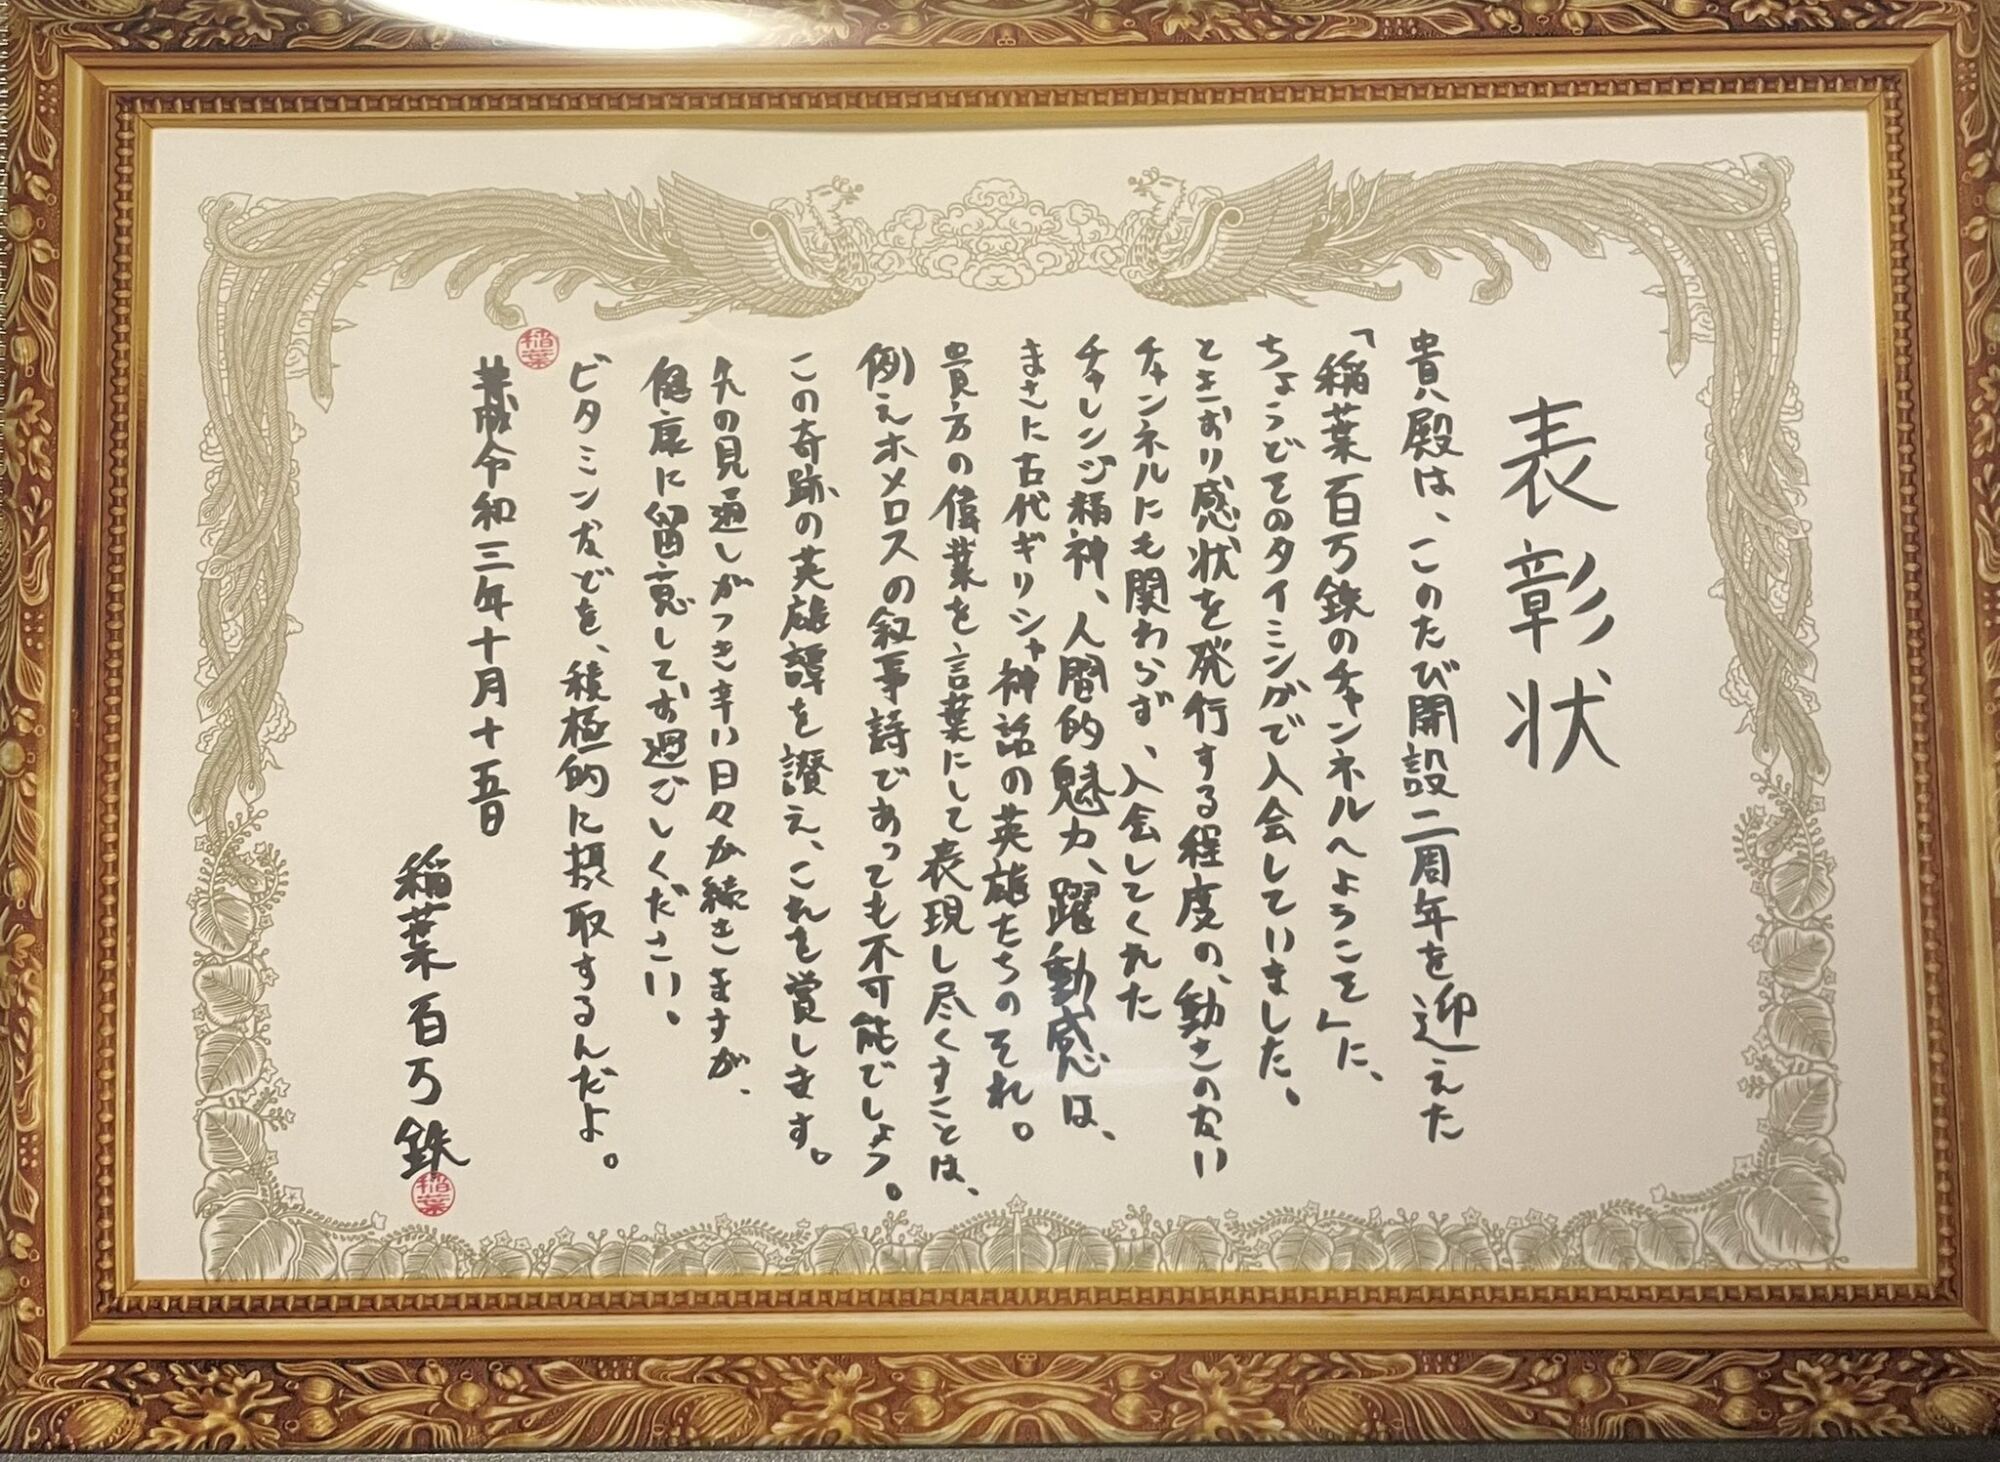 表彰状
貴殿は、このたび開設二周年を迎えた
「稲葉百万鉄のチャンネルへようこそ」に、
ちょうどそのタイミングで入会していました。
ときおり感状を発行する程度の、動きのない
チャンネルにも関わらず、入会してくれた
チャレンジ精神、人間的魅力、躍動感は、
まさに古代ギリシャ神話の英雄たちのそれ。
貴方の偉業を言葉にして表現し尽くすことは、
例えホメロスの叙事詩であっても不可能でしょう。
この奇跡の英雄譚を讃え、これを賞します。
先の見通しがつき辛い日々が続きますが、
健康に留意してお過ごしください。
ビタミンなどを、積極的に摂取するんだよ。
稲葉
令和三年十月十五日
稲葉百万鉄
稲葉